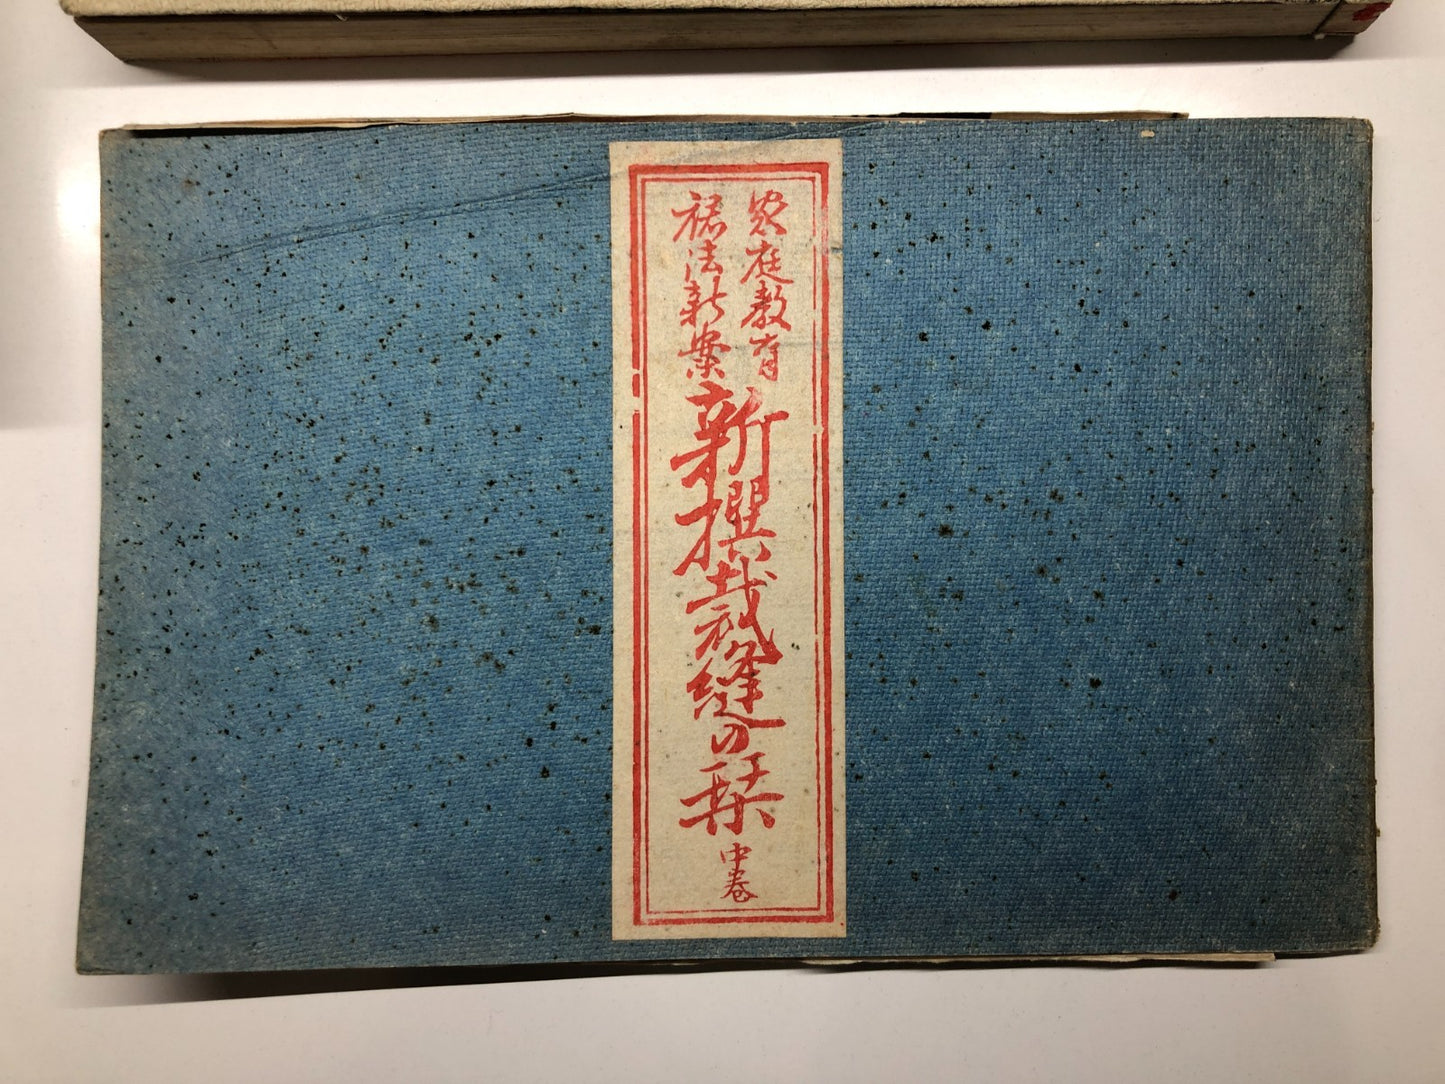 家庭教育
裾法新案
新撰裁縫の栞
中巻